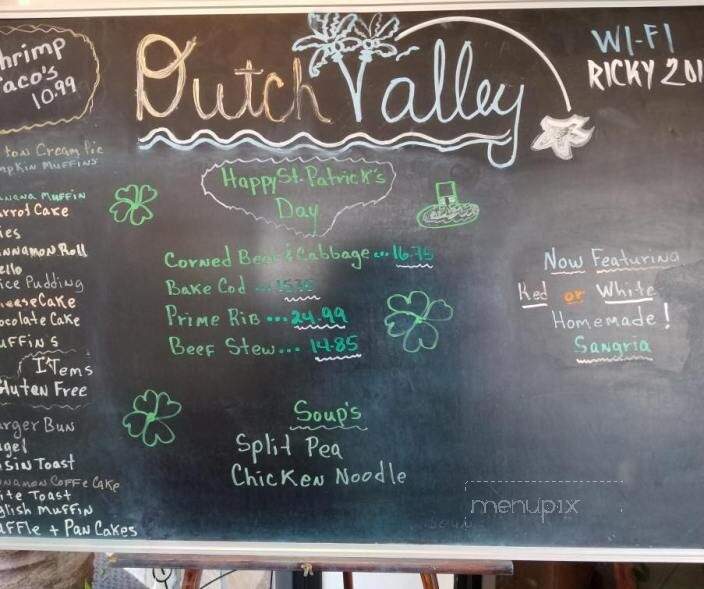 Dutch Valley
WI-FI
RICKY 201
hrimp
aco's
10.99
ton Cream Pie
mpkin Muffins
anana Muffin
arrot Cake
ies
innamon Roll
ello
ice Pudding
heeseCake
ocolate Cake
uffins
ITems
luten Free
urger Bun
agel
isin Toast
nnamon Coffe Cake
ite Toast
glish Muffin
affle + Pan Cakes
Happy St. Patrick's
Day
Corned Beef & Cabbage ... 16.75
Bake Cod ...
Prime Rib ... 24.99
Beef Stew ... 14.85
Soup's
Split Pea
Chicken Noodle
Now Featuring
Red or White
Homemade!
Sangria
menupix